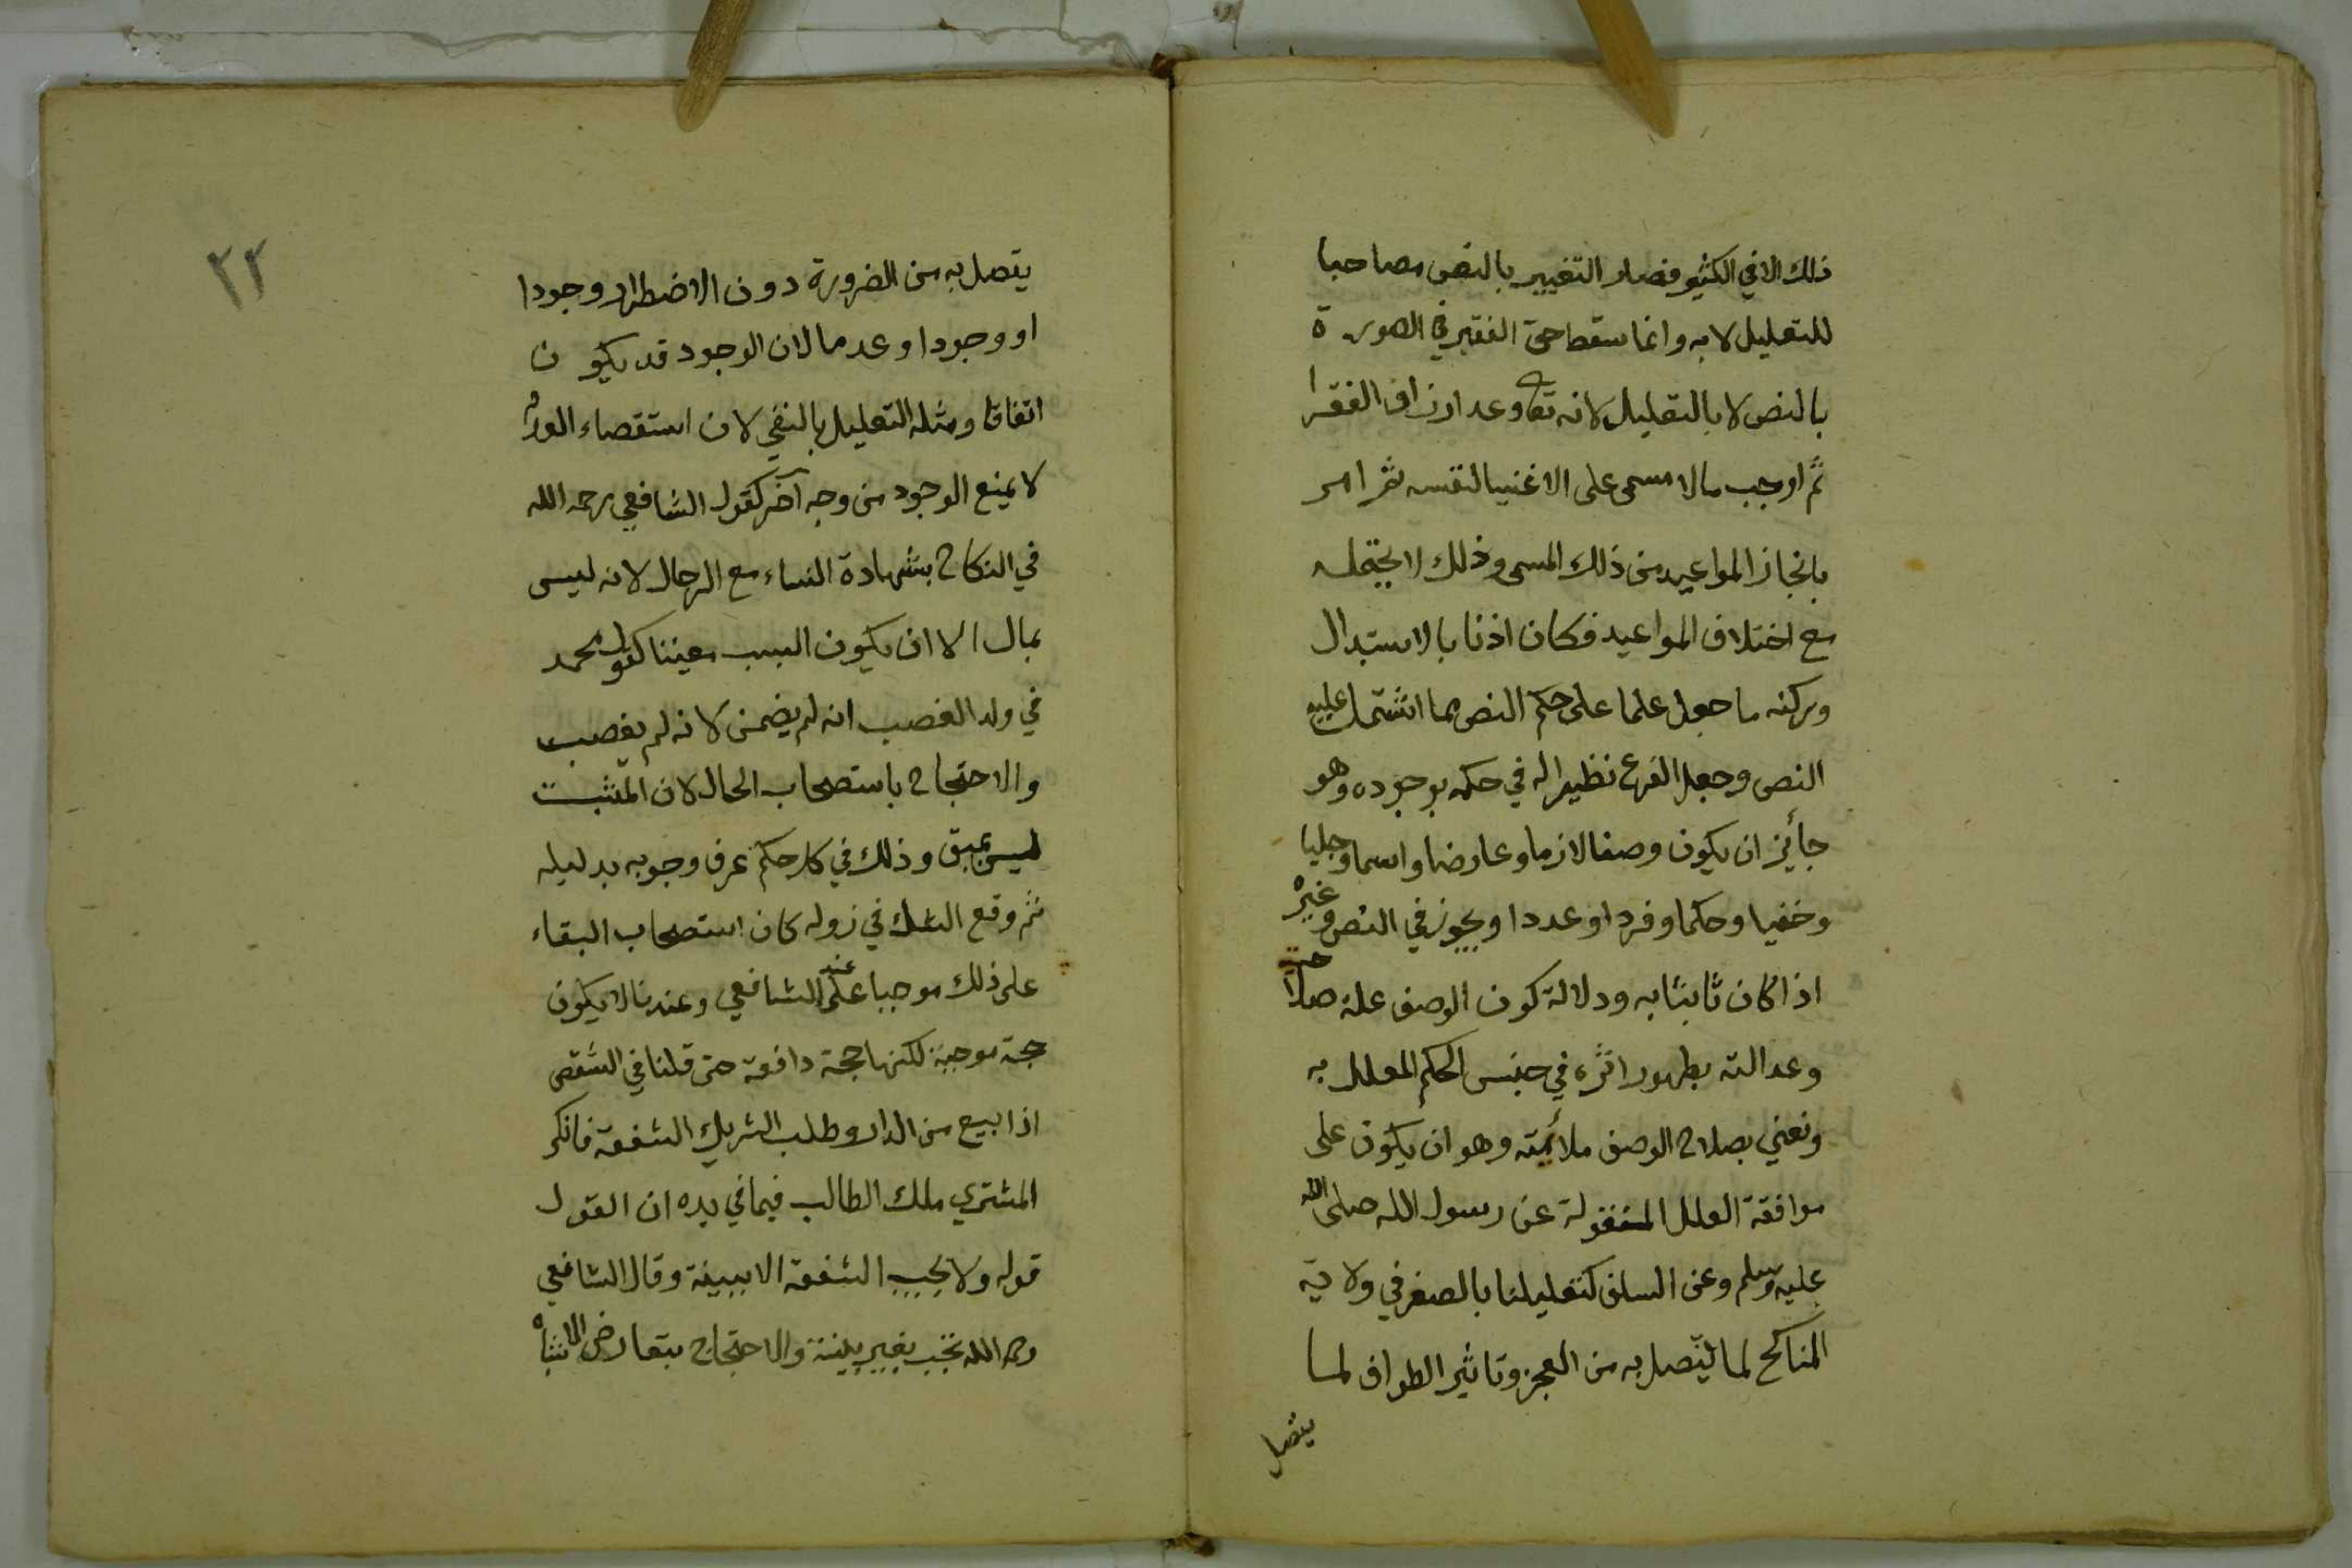 ذلك الا في الكثير فصار التغيير بالنص مصاحبا
للتعليل لا به وانما سقط حق الفقير في الصورة
بالنص لا بالتعليل لانه تعا وعد ارزاق الفقرا
ثم اوجب مالا مسمى على الاغنيا لنفسه ثم امر
بانجاز المواعيد من ذلك المسمى وذلك لا يحتمله
مع اختلاف المواعيد فكان اذنا بالاستبدال
وركنه ما جعل علما على حكم النص مما اشتمل عليه
النص وجعل الفرع نظيرا له في حكمه بوجوده وهو
جائز ان يكون وصفا لازما وعارضا واسما وجليا
وخفيا وحكما وفردا وعددا ويجوز في النص وغيره
اذا كان ثابتا به ودلالة كون الوصف علة صلاحه
وعدالته بظهور اثره في جنس الحكم المعلل به
ونعني بصلاح الوصف ملائمته وهو ان يكون على
موافقة العلل المنقولة عن رسول الله صلى الله
عليه وسلم وعن السلف كتعليلنا بالصغر في ولاية
المناكح لما يتصل به من العجز وتاثير الطواف لما
يتصل
٢٢
يتصل به من الضرورة دون الاضطراد وجودا
او وجودا وعدما لان الوجود قد يكون
اتفاقا ومثله التعليل بالنفي لان استقصاء العدم
لا يمنع الوجود من وجه آخر كقول الشافعي رحمه الله
في النكاح بشهادة النساء مع الرجال لانه ليس
بمال الا ان يكون السبب معينا كقول محمد
في ولد الغصب انه لم يضمن لانه لم يغصب
والاحتجاج باستصحاب الحال لان المثبت
ليس بمبق وذلك في كل حكم عرف وجوبه بدليله
ثم وقع الشك في زوله كان استصحاب البقاء
على ذلك موجبا عند الشافعي وعندنا لا يكون
حجة موجبة لكنها حجة دافعة حتى قلنا في الشقص
اذا بيع من الدار وطلب الشريك الشفعة فانكر
المشتري ملك الطالب فيما في يده ان القول
قوله ولا يجب الشفعة الا ببينة وقال الشافعي
رحمه الله تجب بغير بينة والاحتجاج بتعارض الاشباه